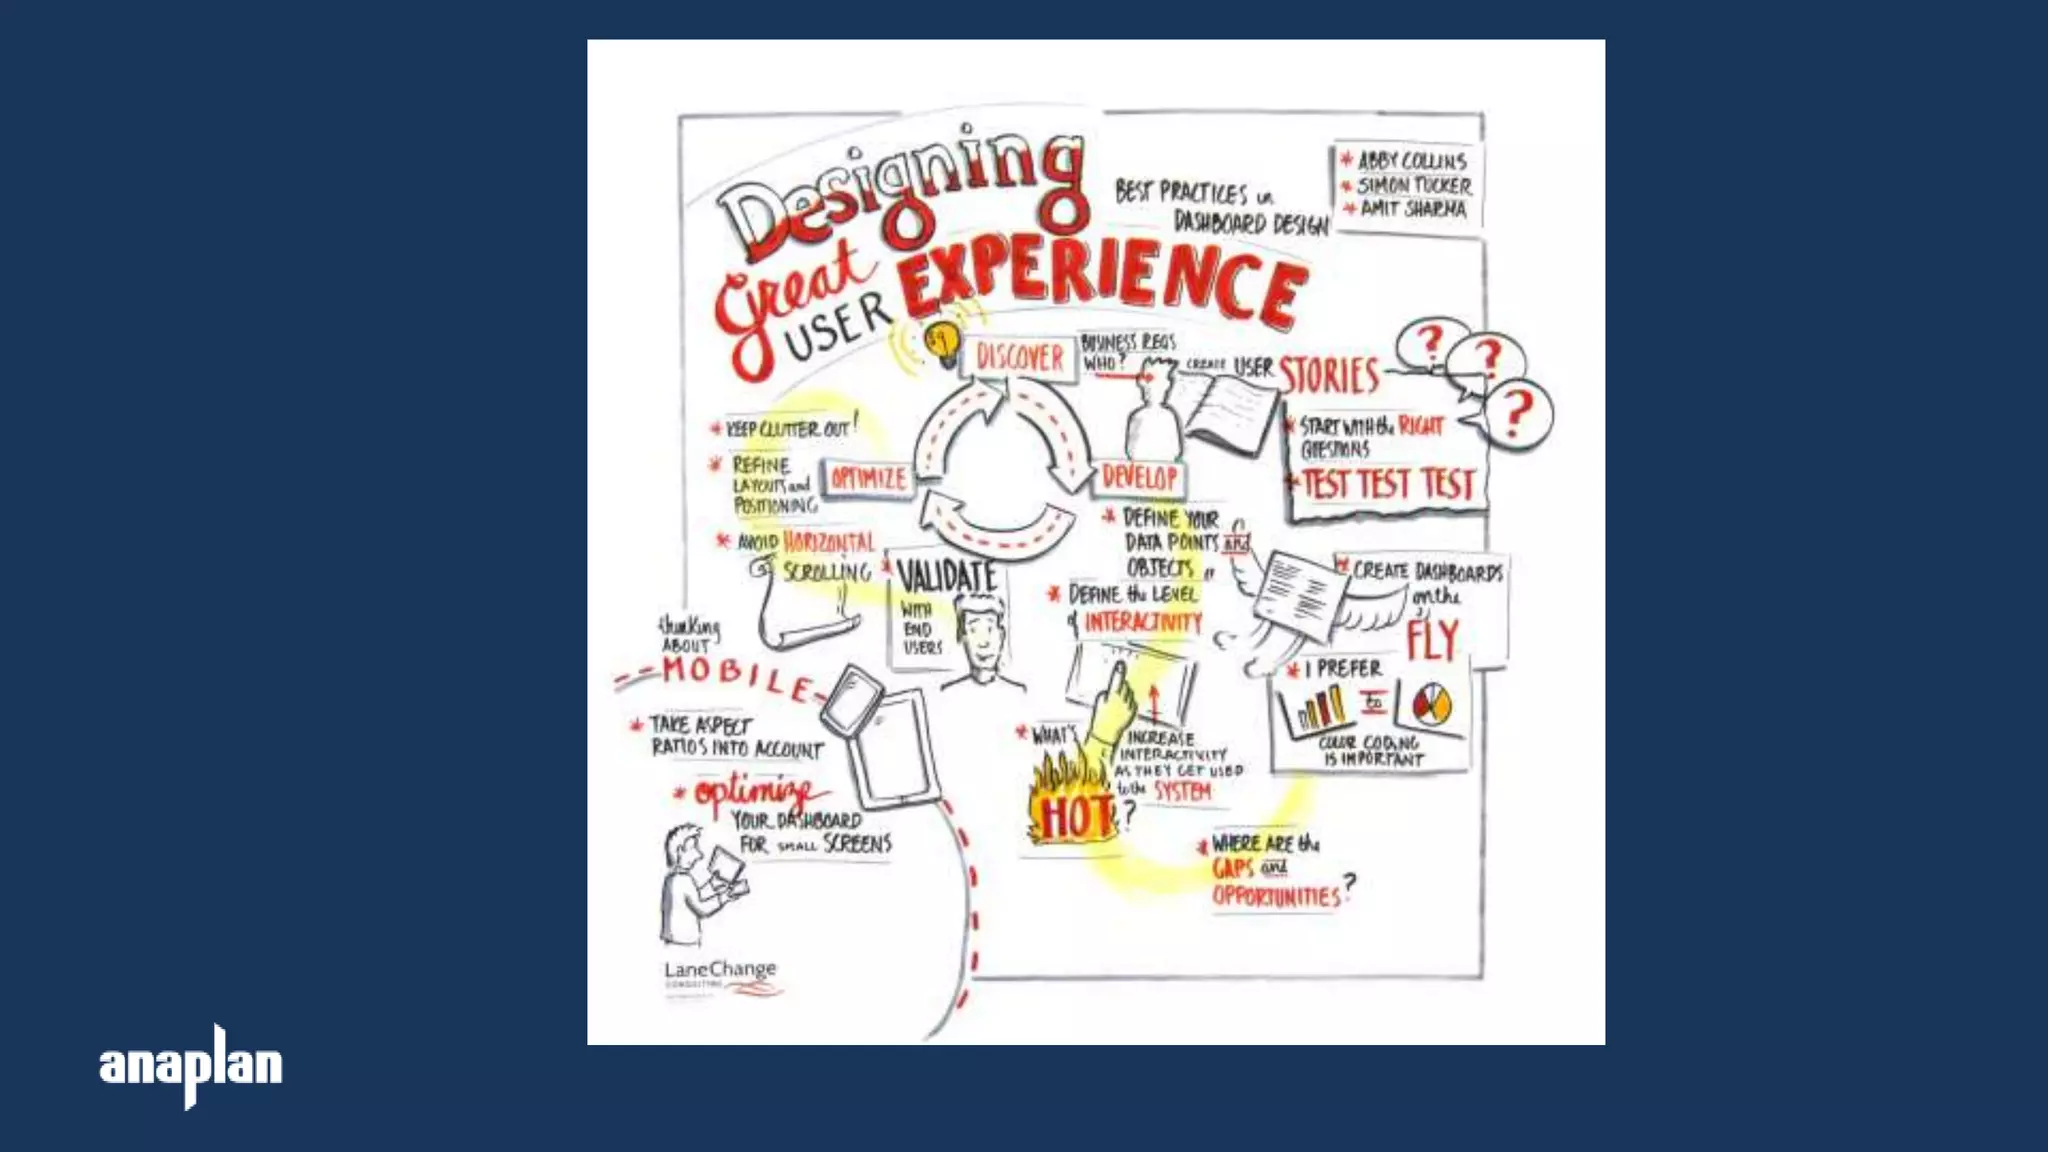 Designing
Great
USER
EXPERIENCE
BEST PRACTICES in
DASHBOARD DESIGN
* ABBY COLLINS
* SIMON TUCKER
* AMIT SHARMA
DISCOVER
BUSINESS REQS
WHO?
CREATE USER STORIES
? ? ?
* START WITH the RIGHT
QUESTIONS
* TEST TEST TEST
* KEEP CLUTTER OUT!
* REFINE
LAYOUTS and
POSITIONING
OPTIMIZE
* AVOID HORIZONTAL
SCROLLING
* VALIDATE
WITH
END
USERS
DEVELOP
* DEFINE YOUR
DATA POINTS and
OBJECTS
* DEFINE the LEVEL
of INTERACTIVITY
* CREATE DASHBOARDS
on the
FLY
* I PREFER
to
COLOR CODING
IS IMPORTANT
* WHAT'S
HOT?
INCREASE
INTERACTIVITY
AS THEY GET USED
to the SYSTEM
* WHERE ARE the
GAPS and
OPPORTUNITIES?
thinking
ABOUT
MOBILE
* TAKE ASPECT
RATIOS INTO ACCOUNT
* optimize
YOUR DASHBOARD
FOR SMALL SCREENS
LaneChange
CONSULTING
anaplan